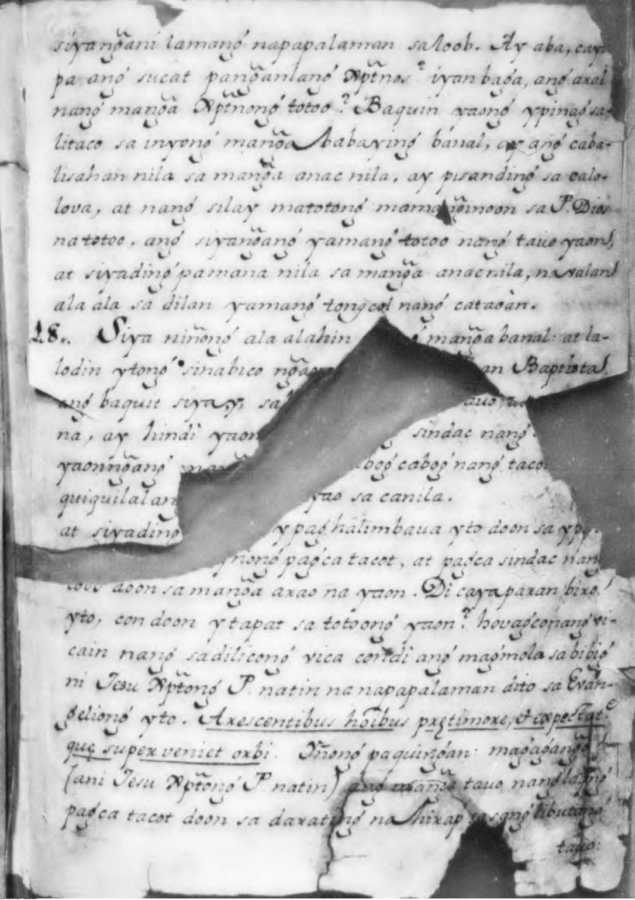 siyang̃ani lamang̃ napapalaman sa loob. Ay aba, cay
pa ang̃ sucat pang̃anlang̃ Xp̃tnos? iyan bag̃a, ang̃ aral
nang̃ mang̃a Xp̃tnong̃ totoo? Baquin yaong̃ ypinag̃sa-
litaco sa inyong̃ mang̃a babaying̃ banal, ay ang̃ caba-
lisahan nila sa mang̃a anac nila, ay pisanding̃ sa calo-
lova, at nang̃ silay matotong̃ mamang̃inoon sa P. Dios
na totoo, ang̃ siyang̃ang̃ yamang̃ totoo nang̃ tauo yaon,
at siyading̃ pamana nila sa mang̃a anac nila, na valan
ala ala sa dilan yamang̃ tong̃col nang̃ cataoan.
18. Siya nining̃ ala alahin mang̃a banal: at la-
lodin ytong̃ sinabico an Baptista,
ang̃ baquit siyay, sa tauo
na, ay hindi yaon sindac nang̃
yaonng̃ang̃ cabog̃ nang̃ taco
quiquilalan yao sa canila.
at siyading̃ y pag̃halimbaua yto doon sa
pag̃ca tacot, at pag̃ca sindac nang̃
doon sa mang̃a arao na yaon. Di caya paran biro,
yto, con doon ytapat sa totoong̃ yaon? houag̃cop̃ang̃ vi-
cain nang̃ sadilicong̃ vica condi ang̃ mag̃mola sa bibig̃
ni Jesu Xp̃tong̃ P. natin na napapalaman dito sa Evan-
g̃eliong̃ yto. Arescentibus hoĩbus prętimore, et expectat.e
quę super venient orbi. Yñong̃ paquing̃an: mag̃ag̃ang̃
(ani Jesu Xp̃tong̃ P. natin) ang̃ mang̃a tauo, nang̃
pag̃ca tacot doon sa darating̃ na hirap sa libutang̃
tauo: